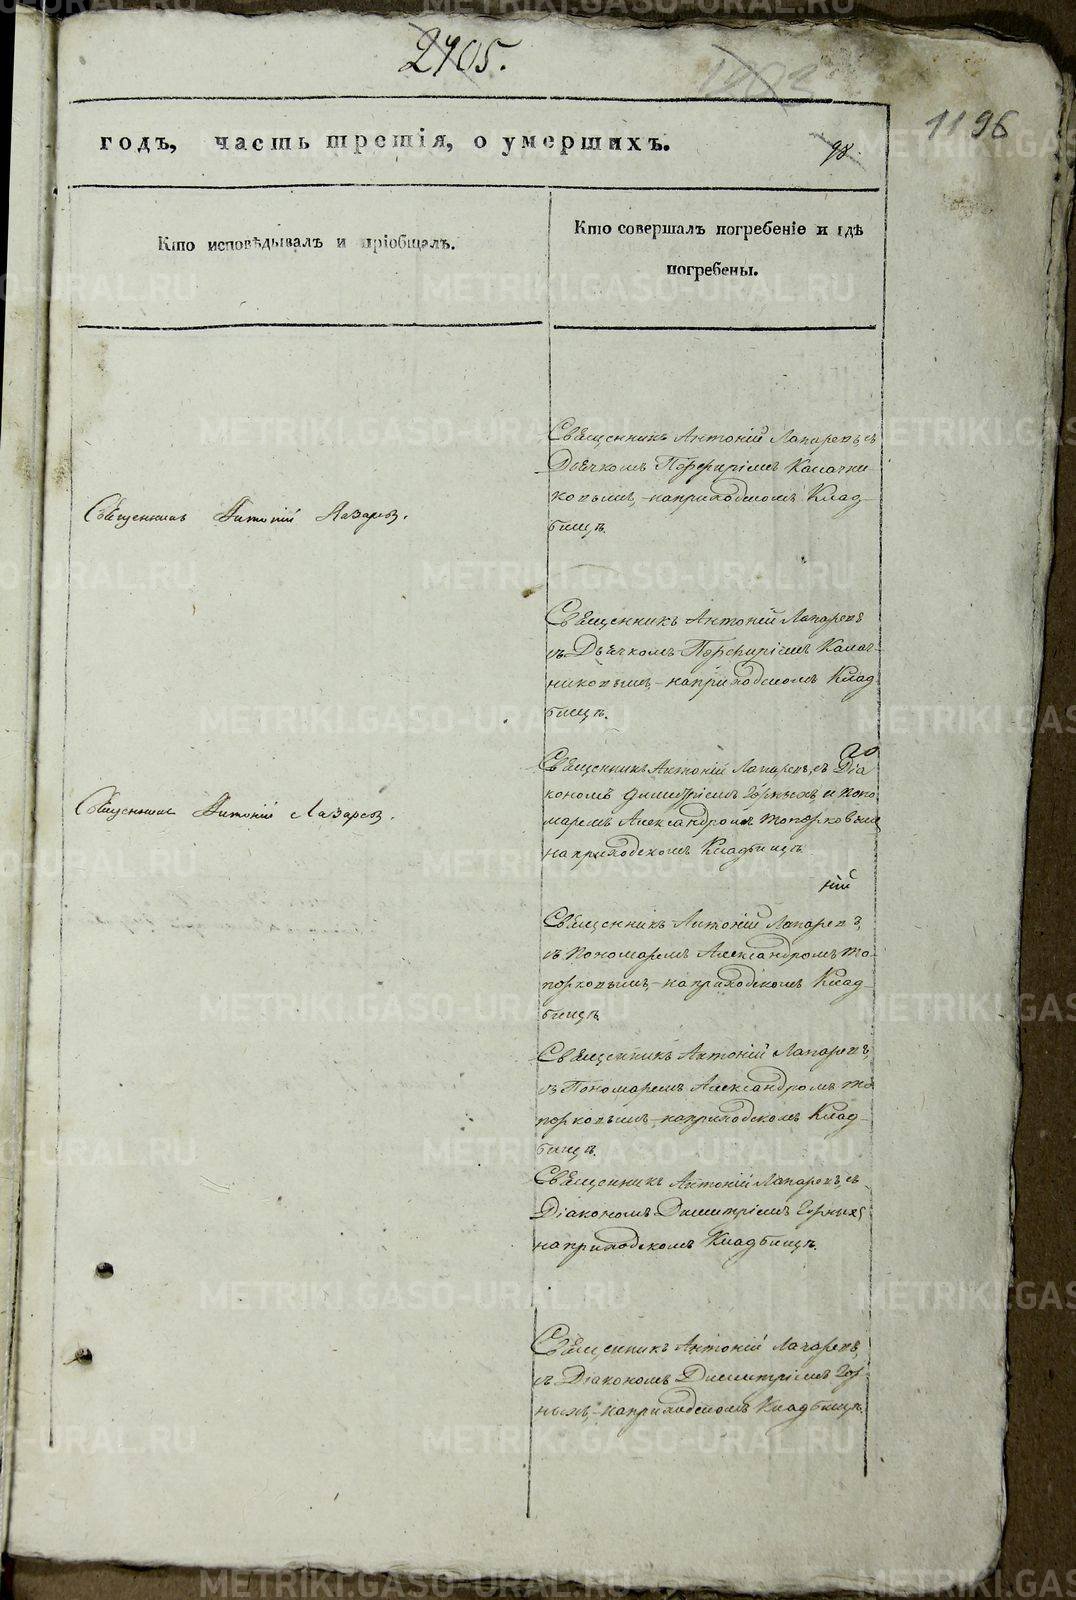 2405.
1196
годъ, часть третія, о умершихъ.
98.
Кто исповѣдывалъ и пріобщалъ.
Кто совершалъ погребеніе и гдѣ
погребены.
Священникъ Антоній Лазаревъ, съ
Дьячкомъ Порфиріемъ Калачни
ковымъ, на приходскомъ Клад-
бищѣ.
Священникъ Антоній Лазаревъ.
Священникъ Антоній Лазаревъ
съ Дьячкомъ Порфиріемъ Калач-
никовымъ, на приходскомъ Клад
бищѣ.
Священникъ Антоній Лазаревъ, съ Діа
кономъ Димитріемъ Горныхъ и Поно
маремъ Александромъ Топорковымъ
на приходскомъ Кладбищѣ
Священникъ Антоній Лазаревъ.
ній
Священникъ Антоній Лазаревъ,
съ Пономаремъ Александромъ То-
порковымъ, на приходскомъ Клад-
бищѣ.
Священникъ Антоній Лазаревъ,
съ Пономаремъ Александромъ То
порковымъ, на приходскомъ Клад-
бищѣ.
Священникъ Антоній Лазаревъ, съ
Діакономъ Димитріемъ Горныхъ
на приходскомъ Кладбищѣ.
Священникъ Антоній Лазаревъ,
съ Діакономъ Димитріемъ Гор-
ныхъ, на приходскомъ Кладбищѣ.
METRIKI.GASO-URAL.RU